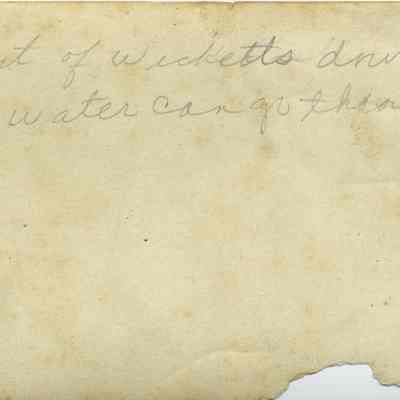 t of Wicketts dow
water can go thro